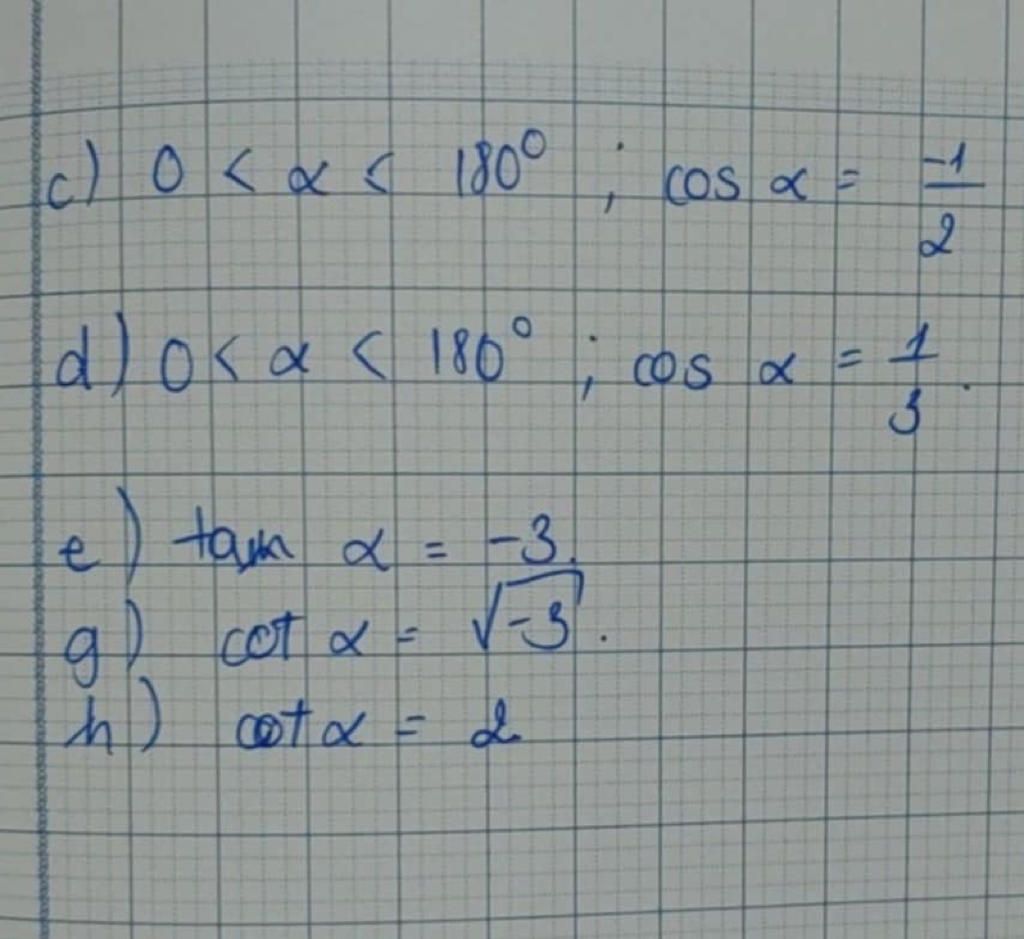 c) 0 < α < 180⁰ ; cos α = -1/2
d) 0 < α < 180⁰ ; cos α = 1/3.
e) tan α = -3.
g) cot α = √-3.
h) cot α = 2